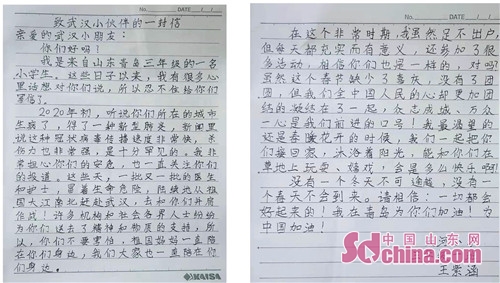 No.
DATE / /
致武汉小伙伴的一封信
亲爱的武汉小朋友:
你们好啊!
我是来自山东青岛三年级的一名
小学生。这些日子以来,我有很多心
里话想对你们说,所以忍不住给你们
写信了。
2020年初,听说你们所在的城市
生病了,得了一种新型肺炎,新闻里
说这种冠状病毒传播速度非常快,杀
伤力也非常强,是十分罕见的。我非
常担心你们的安危,一直关注你们
的报道。这些天,一批又一批的医生
和护士,冒着生命危险,陆续地从祖
国大江南北赶赴武汉,去和你们并肩
作战!许多机构和社会各界人士纷纷
为你们送去了精神和物质的支持,所
以,你们不要害怕,祖国妈妈一直陪
在你们身边,我们大家也一直陪在你
们身边。
KAISA
No.
DATE / /
在这个非常时期,我虽然足不出户,
但每天都充实而有意义,还参加了很
多活动,相信你们也是一样的,对吗?
虽然这个春节缺少了喜庆,没有了团
圆,但我们全中国人民的心却更加团
结的凝结在了一起,众志成城、万众
一心是我们前进的口号!我最渴望的
还是春暖花开的时候,我们一起把你
们接回家,沐浴着阳光,能和你们在
草地上玩耍、嬉戏,会是多么快乐啊!
没有一个冬天不可逾越,没有一
个春天不会到来。请相信:一切都会
好起来的!我在青岛为你们加油!为
中国加油!
王紫涵
中国山东网
SDchina.com